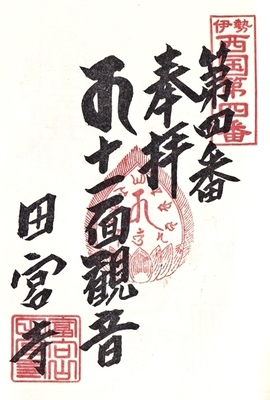 伊勢
西国第四番
第四番
奉拝
十一面観音
田宮寺